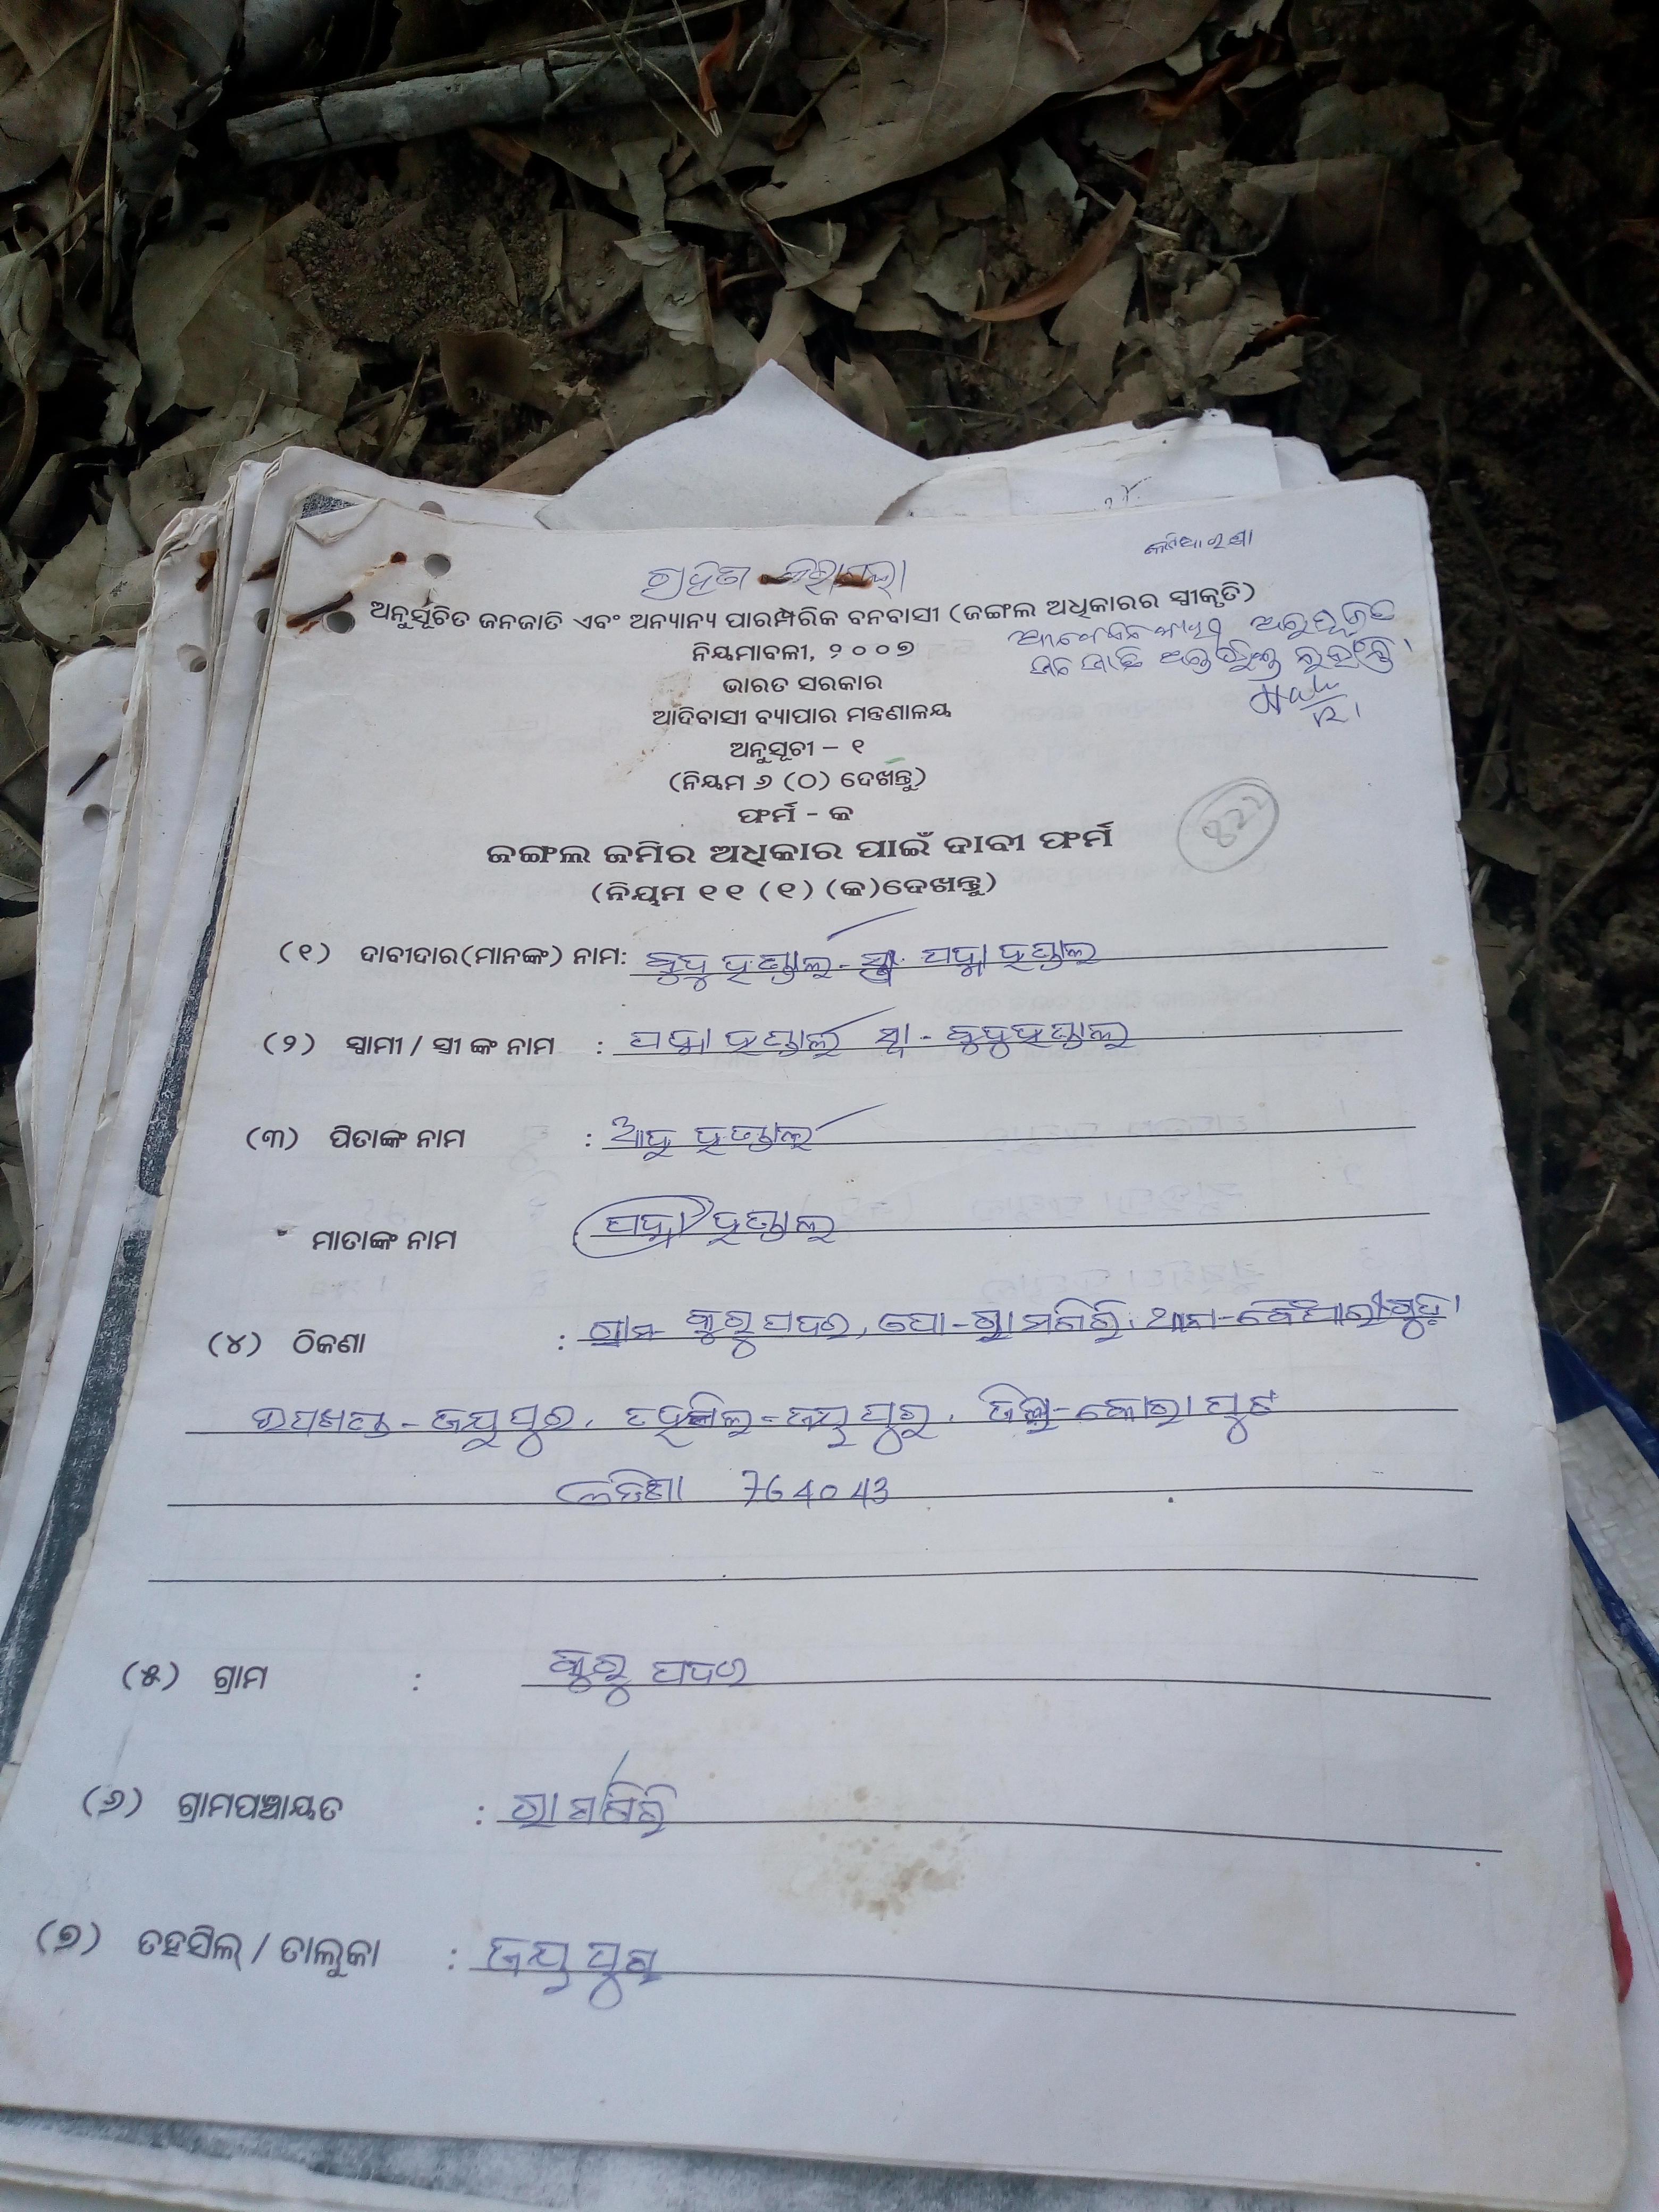 ଗ୍ରହିତ
ଅନୁସୂଚିତ ଜନଜାତି ଏବଂ ଅନ୍ୟାନ୍ୟ ପାରମ୍ପରିକ ବନବାସୀ (ଜଙ୍ଗଲ ଅଧିକାରର ସ୍ୱୀକୃତି)
ନିୟମାବଳୀ, ୨୦୦୭
ଭାରତ ସରକାର
ଆଦିବାସୀ ବ୍ୟାପାର ମନ୍ତ୍ରଣାଳୟ
ଅନୁସୂଚୀ – ୧
(ନିୟମ ୬ (୦) ଦେଖନ୍ତୁ)
ଫର୍ମ - କ
822
ଜଙ୍ଗଲ ଜମିର ଅଧିକାର ପାଇଁ ଦାବୀ ଫର୍ମ
(ନିୟମ ୧୧ (୧) (କ) ଦେଖନ୍ତୁ)
(୧) ଦାବୀଦାର(ମାନଙ୍କ) ନାମ: ବୁଦୁ ହନ୍ତାଲ - ପଦ୍ମା ହନ୍ତାଲ
(୨) ସ୍ୱାମୀ / ସ୍ତ୍ରୀ ଙ୍କ ନାମ : ପଦ୍ମା ହନ୍ତାଲ ସ୍ୱା - ବୁଦୁ ହନ୍ତାଲ
(୩) ପିତାଙ୍କ ନାମ : ଆଦୁ ହନ୍ତାଲ
ମାତାଙ୍କ ନାମ ପଦ୍ମା ହନ୍ତାଲ
(୪) ଠିକଣା : ଗ୍ରାମ - କୁରୁ ପଦର, ପୋ - ରାମଗିରି, ଥାନା - ବୈପାରୀଗୁଡ଼ା
ଉପଖଣ୍ଡ - ଜୟପୁର, ତହସିଲ - ଜୟପୁର, ଜିଲ୍ଲା - କୋରାପୁଟ
ଓଡିଶା 764043
(୫) ଗ୍ରାମ : କୁରୁ ପଦର
(୬) ଗ୍ରାମପଞ୍ଚାୟତ : ରାମଗିରି
(୭) ତହସିଲ୍ / ତାଲୁକା : ଜୟପୁର